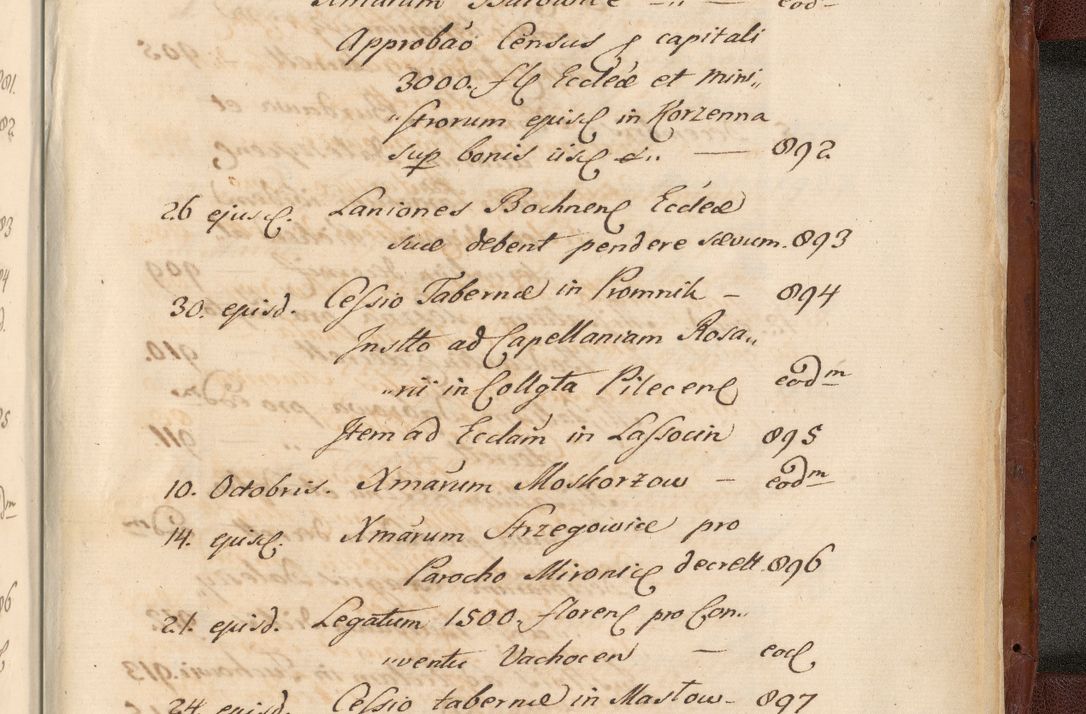 Xmarum Barwice — " — eod
Approbao Census p capitali
3000. fl Eccleæ et mini„
„strorum episc in Korzenna
sup bonis iisc &.. — 892
26 ejusc. Laniones Bochnens Eccleæ
suæ debent pendere sævum. 893
30. episd. Cessio Tabernæ in Promnik – 894
Instto ad Capellaniam Rosa„
„rii in Collgta Pilecens eodm
Item ad Ecclam in Lassocin 895
10. Octobris. Xmarum Moskorzow – eodm
14. ejusc. Xmarum Strzegowice pro
Parocho Mironic decrett. 896
21. episd. Legatum 1500. florenc pro Con„
„ventu Vachocen — eod
24 episd. Cessio tabernæ in Mastow – 897